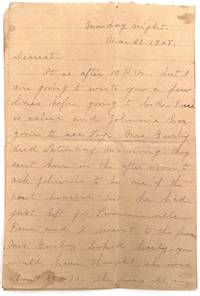 Monday night.
Mar. 23 1908.
Dearest:
It is after 10 P.M. but I
am going to write you a few
lines before going to bed.
is asleep and Johnnie has
gone to see Mrs.
died Saturday morning. they
sent here in the afternoon to
ask Johnnie to be one of the
pall bearers but he had
just left for
and I went to the
Mrs. looked lovely. you
would have thought she was